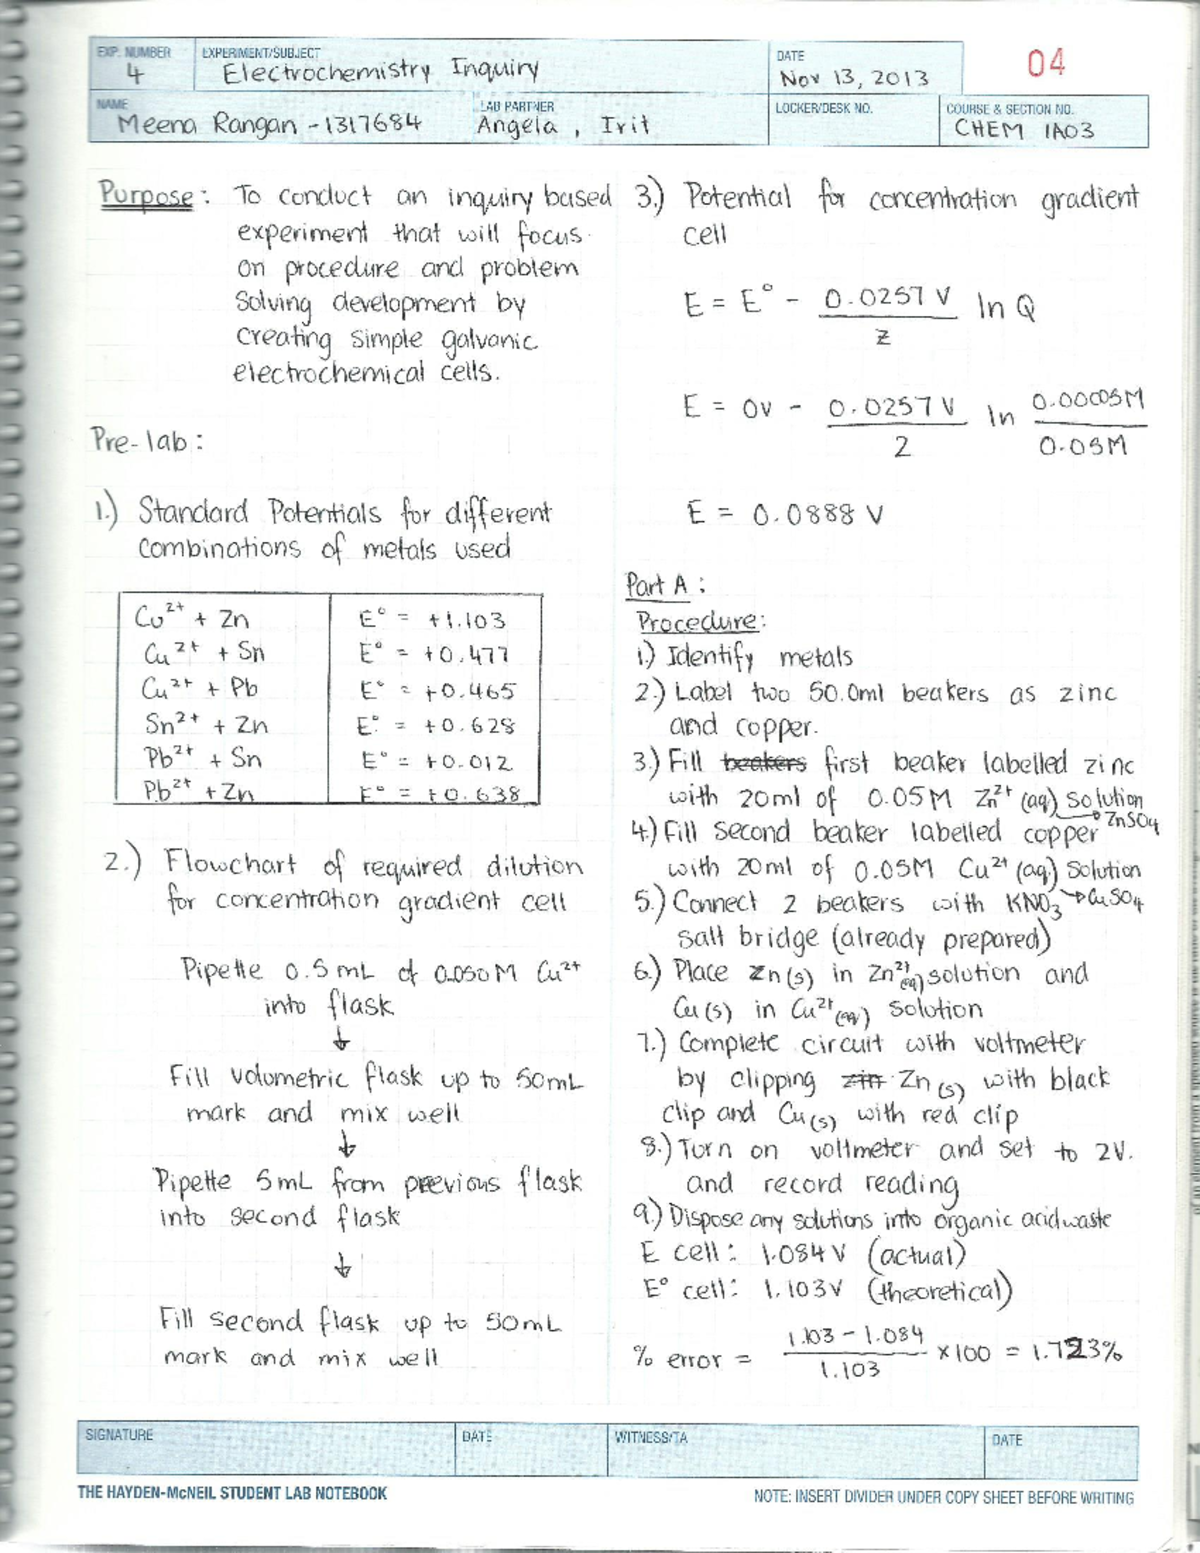 EXP. NUMBER
4
EXPERIMENT/SUBJECT
Electrochemistry Inquiry
DATE
Nov 13, 2013
04
NAME
Meena Rangan - 1317684
LAB PARTNER
Angela , Irit
LOCKER/DESK NO.
COURSE & SECTION NO.
CHEM 1A03
Purpose: To conduct an inquiry based
experiment that will focus
on procedure and problem
solving development by
creating simple galvanic
electrochemical cells.
Pre-lab:
1.) Standard Potentials for different
combinations of metals used
Cu²⁺ + Zn E° = +1.103
Cu²⁺ + Sn E° = +0.477
Cu²⁺ + Pb E° = +0.465
Sn²⁺ + Zn E° = +0.628
Pb²⁺ + Sn E° = +0.012
Pb²⁺ + Zn E° = +0.638
2.) Flowchart of required dilution
for concentration gradient cell
Pipette 0.5mL of 0.050M Cu²⁺
into flask
↓
Fill volumetric flask up to 50mL
mark and mix well
↓
Pipette 5mL from previous flask
into second flask
↓
Fill second flask up to 50mL
mark and mix well
3.) Potential for concentration gradient
cell
E = E° - 0.0257 V / z ln Q
E = 0V - 0.0257 V / 2 ln 0.00005M / 0.05M
E = 0.0888 V
Part A:
Procedure:
1.) Identify metals
2.) Label two 50.0ml beakers as zinc
and copper.
3.) Fill beakers first beaker labelled zinc
with 20ml of 0.05M Zn²⁺ (aq) solution
→ ZnSO₄
4.) Fill second beaker labelled copper
with 20ml of 0.05M Cu²⁺ (aq) solution
→ CuSO₄
5.) Connect 2 beakers with KNO₃
salt bridge (already prepared)
6.) Place Zn(s) in Zn²⁺(aq) solution and
Cu(s) in Cu²⁺(aq) solution
7.) Complete circuit with voltmeter
by clipping zin Zn(s) with black
clip and Cu(s) with red clip
8.) Turn on voltmeter and set to 2V.
and record reading
9.) Dispose any solutions into organic acid waste
E cell: 1.084V (actual)
E° cell: 1.103V (theoretical)
% error = 1.103 - 1.084 / 1.103 × 100 = 1.723%
SIGNATURE
DATE
WITNESS/TA
DATE
THE HAYDEN-McNEIL STUDENT LAB NOTEBOOK
NOTE: INSERT DIVIDER UNDER COPY SHEET BEFORE WRITING